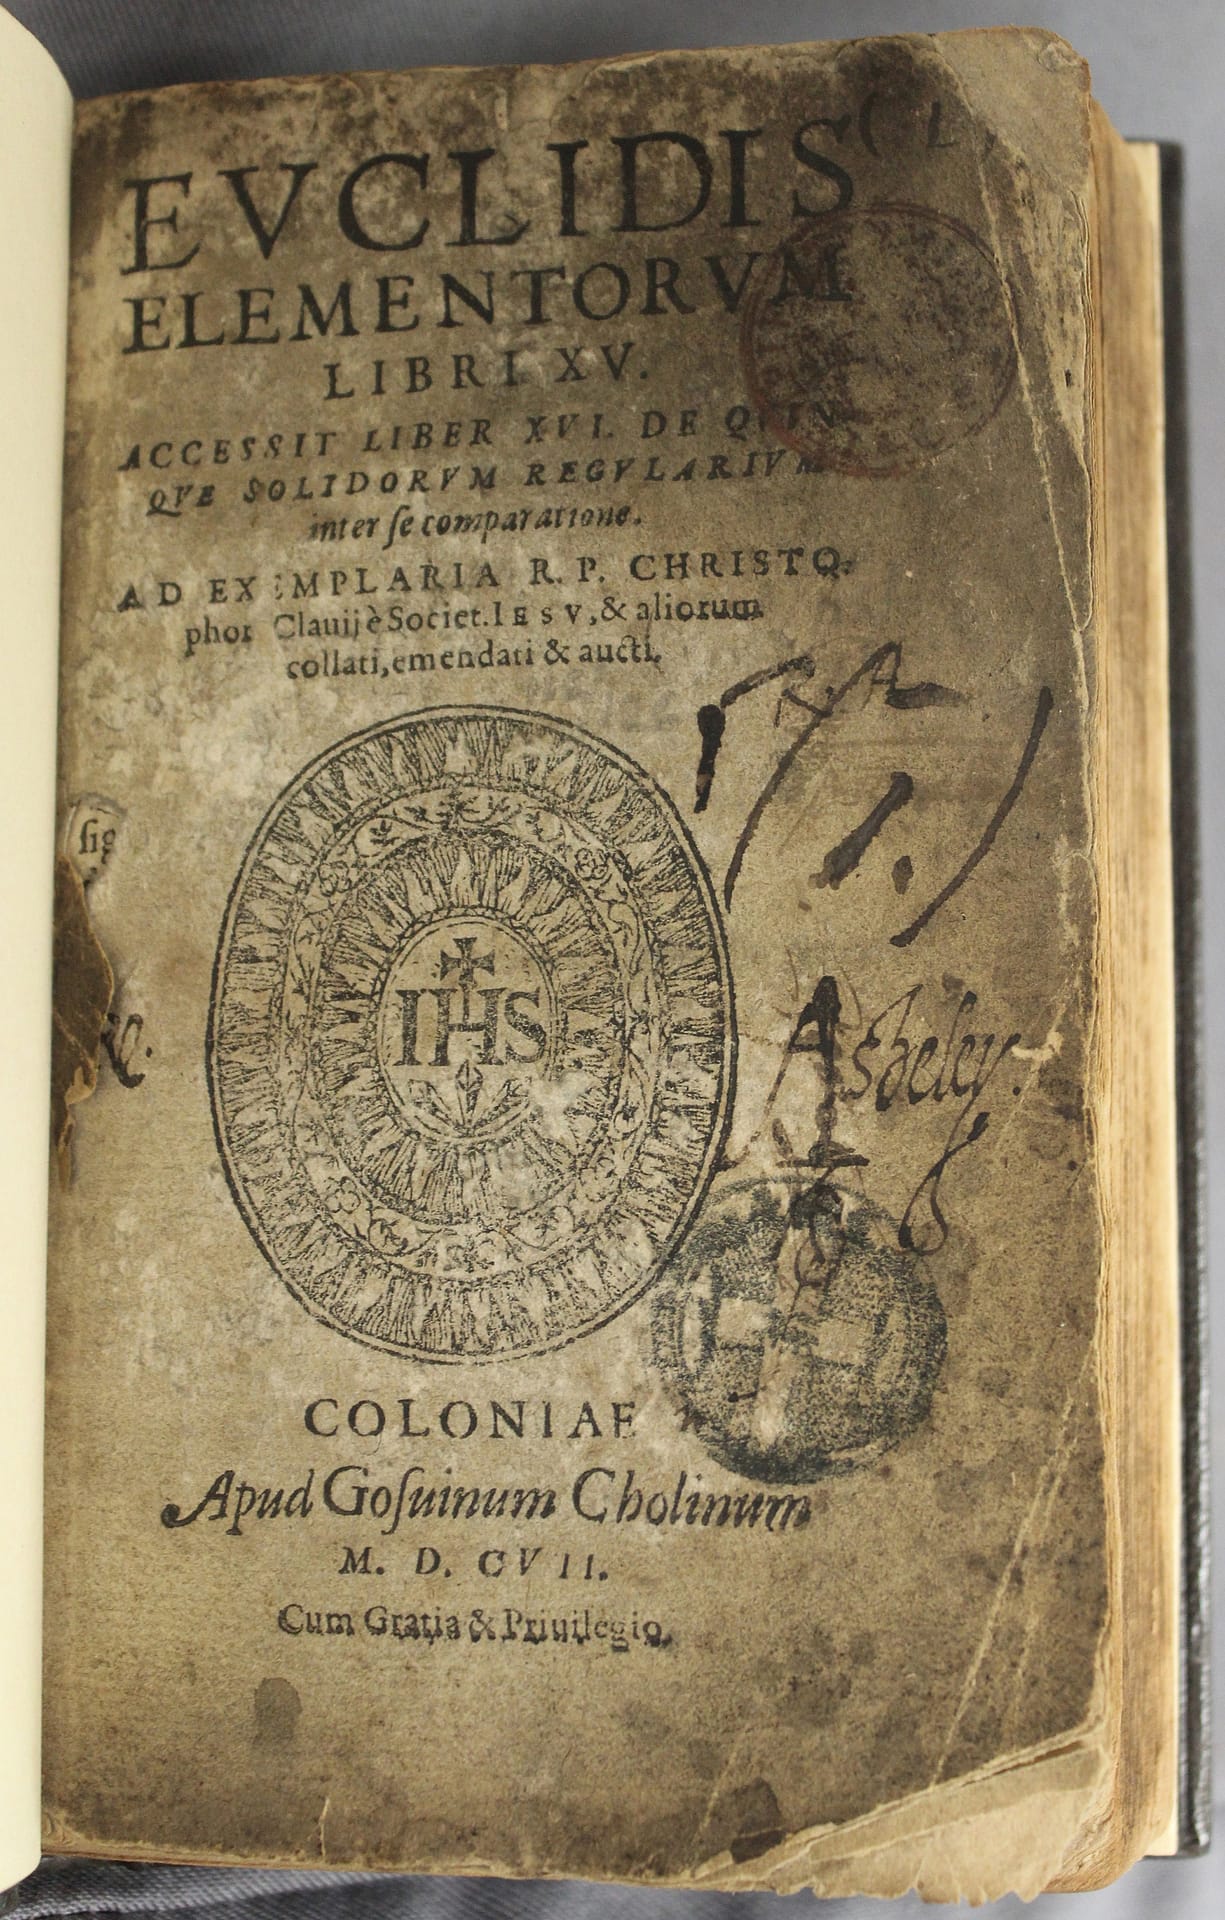 EVCLIDIS
ELEMENTORVM
LIBRI XV.
ACCESSIT LIBER XVI. DE QVIN
QVE SOLIDORVM REGVLARIVM
inter ſe comparatione.
AD EXEMPLARIA R. P. CHRISTO-
phor Clauij è Societ. IESV, & aliorum
collati, emendati & aucti.
ſig
IHS
Asheley.
COLONIAE
Apud Goſuinum Cholinum
M. D. CVII.
Cum Gratia & Priuilegio.